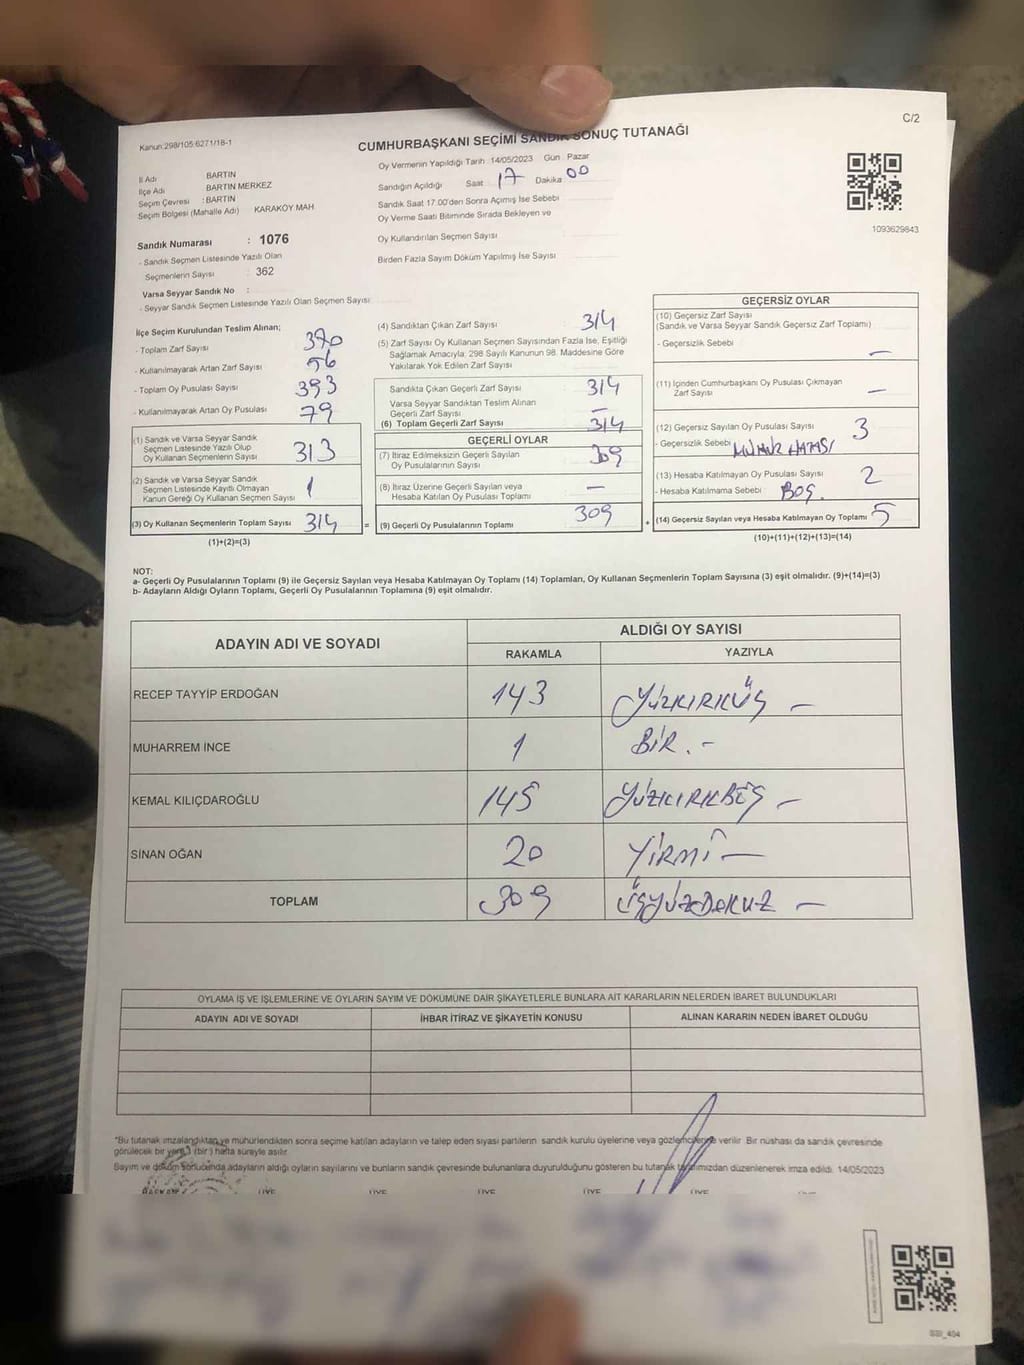 C/2
Kanun 298/105:6271/18-1
CUMHURBAŞKANI SEÇİMİ SANDIK SONUÇ TUTANAĞI
İl Adı BARTIN
İlçe Adı BARTIN MERKEZ
Seçim Çevresi : BARTIN
Seçim Bölgesi (Mahalle Adı) KARAKÖY MAH.
Oy Vermenin Yapıldığı Tarih 14/05/2023 Gün Pazar
Sandığın Açıldığı Saat 17 Dakika 00
Sandık Saat 17.00'den Sonra Açımış İse Sebebi
Oy Verme Saati Bitiminde Sırada Bekleyen ve
Oy Kullandırılan Seçmen Sayısı
Birden Fazla Sayım Döküm Yapılmış İse Sayısı
1093629843
Sandık Numarası : 1076
- Sandık Seçmen Listesinde Yazılı Olan
Seçmenlerin Sayısı : 362
Varsa Seyyar Sandık No :
- Seyyar Sandık Seçmen Listesinde Yazılı Olan Seçmen Sayısı
İlçe Seçim Kurulundan Teslim Alınan;
- Toplam Zarf Sayısı 370
- Kullanılmayarak Artan Zarf Sayısı 56
- Toplam Oy Pusulası Sayısı 393
- Kullanılmayarak Artan Oy Pusulası 79
(1) Sandık ve Varsa Seyyar Sandık
Seçmen Listesinde Yazılı Olup
Oy Kullanan Seçmenlerin Sayısı 313
(2) Sandık ve Varsa Seyyar Sandık
Seçmen Listesinde Kayıtlı Olmayan
Kanun Gereği Oy Kullanan Seçmen Sayısı 1
(3) Oy Kullanan Seçmenlerin Toplam Sayısı 314 =
(1)+(2)=(3)
(4) Sandıktan Çıkan Zarf Sayısı : 314
(5) Zarf Sayısı Oy Kullanan Seçmen Sayısından Fazla İse, Eşitliği
Sağlamak Amacıyla; 298 Sayılı Kanunun 98. Maddesine Göre
Yakılarak Yok Edilen Zarf Sayısı
Sandıkta Çıkan Geçerli Zarf Sayısı 314
Varsa Seyyar Sandıktan Teslim Alınan
Geçerli Zarf Sayısı —
(6) Toplam Geçerli Zarf Sayısı 314
GEÇERLİ OYLAR
(7) İtiraz Edilmeksizin Geçerli Sayılan
Oy Pusulalarının Sayısı 309
(8) İtiraz Üzerine Geçerli Sayılan veya
Hesaba Katılan Oy Pusulası Toplamı —
(9) Geçerli Oy Pusulalarının Toplamı 309 +
GEÇERSİZ OYLAR
(10) Geçersiz Zarf Sayısı
(Sandık ve Varsa Seyyar Sandık Geçersiz Zarf Toplamı)
- Geçersizlik Sebebi —
(11) İçinden Cumhurbaşkanı Oy Pusulası Çıkmayan
Zarf Sayısı —
(12) Geçersiz Sayılan Oy Pusulası Sayısı 3
- Geçersizlik Sebebi MÜHÜR HATASI
(13) Hesaba Katılmayan Oy Pusulası Sayısı 2
- Hesaba Katılmama Sebebi BOŞ.
(14) Geçersiz Sayılan veya Hesaba Katılmayan Oy Toplamı 5
(10)+(11)+(12)+(13)=(14)
NOT:
a- Geçerli Oy Pusulalarının Toplamı (9) ile Geçersiz Sayılan veya Hesaba Katılmayan Oy Toplamı (14) Toplamları, Oy Kullanan Seçmenlerin Toplam Sayısına (3) eşit olmalıdır. (9)+(14)=(3)
b- Adayların Aldığı Oyların Toplamı, Geçerli Oy Pusulalarının Toplamına (9) eşit olmalıdır.
ADAYIN ADI VE SOYADI ALDIĞI OY SAYISI
RAKAMLA YAZIYLA
RECEP TAYYİP ERDOĞAN 143 YÜZKIRKÜÇ —
MUHARREM İNCE 1 BİR. —
KEMAL KILIÇDAROĞLU 145 YÜZKIRKBEŞ —
SİNAN OĞAN 20 YİRMİ —
TOPLAM 309 ÜÇYÜZDOKUZ —
OYLAMA İŞ VE İŞLEMLERİNE VE OYLARIN SAYIM VE DÖKÜMÜNE DAİR ŞİKAYETLERLE BUNLARA AİT KARARLARIN NELERDEN İBARET BULUNDUKLARI
ADAYIN ADI VE SOYADI İHBAR İTİRAZ VE ŞİKAYETİN KONUSU ALINAN KARARIN NEDEN İBARET OLDUĞU
"Bu tutanak imzalandıktan ve mühürlendikten sonra seçime katılan adayların ve talep eden siyasi partilerin sandık kurulu üyelerine veya gözlemcilerine verilir. Bir nüshası da sandık çevresinde
görülecek bir yere 1 (bir) hafta süreyle asılır.
Sayım ve döküm sonucunda adayların aldığı oyların sayılarını ve bunların sandık çevresinde bulunanlara duyurulduğunu gösteren bu tutanak tarafımızdan düzenlenerek imza edildi. 14/05/2023
BAŞKAN ÜYE ÜYE ÜYE ÜYE ÜYE